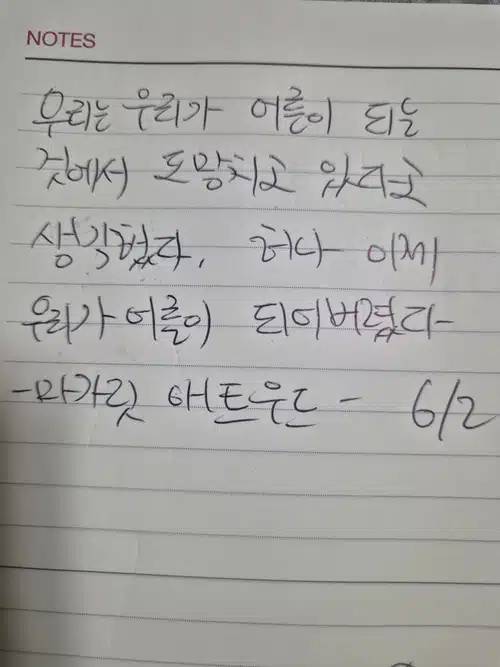 NOTES
우리는 우리가 어른이 되는
것에서 도망치고 있다고
생각했다. 허나 이제
우리가 어른이 되어버렸다
-마가릿 애트우드 - 6/2